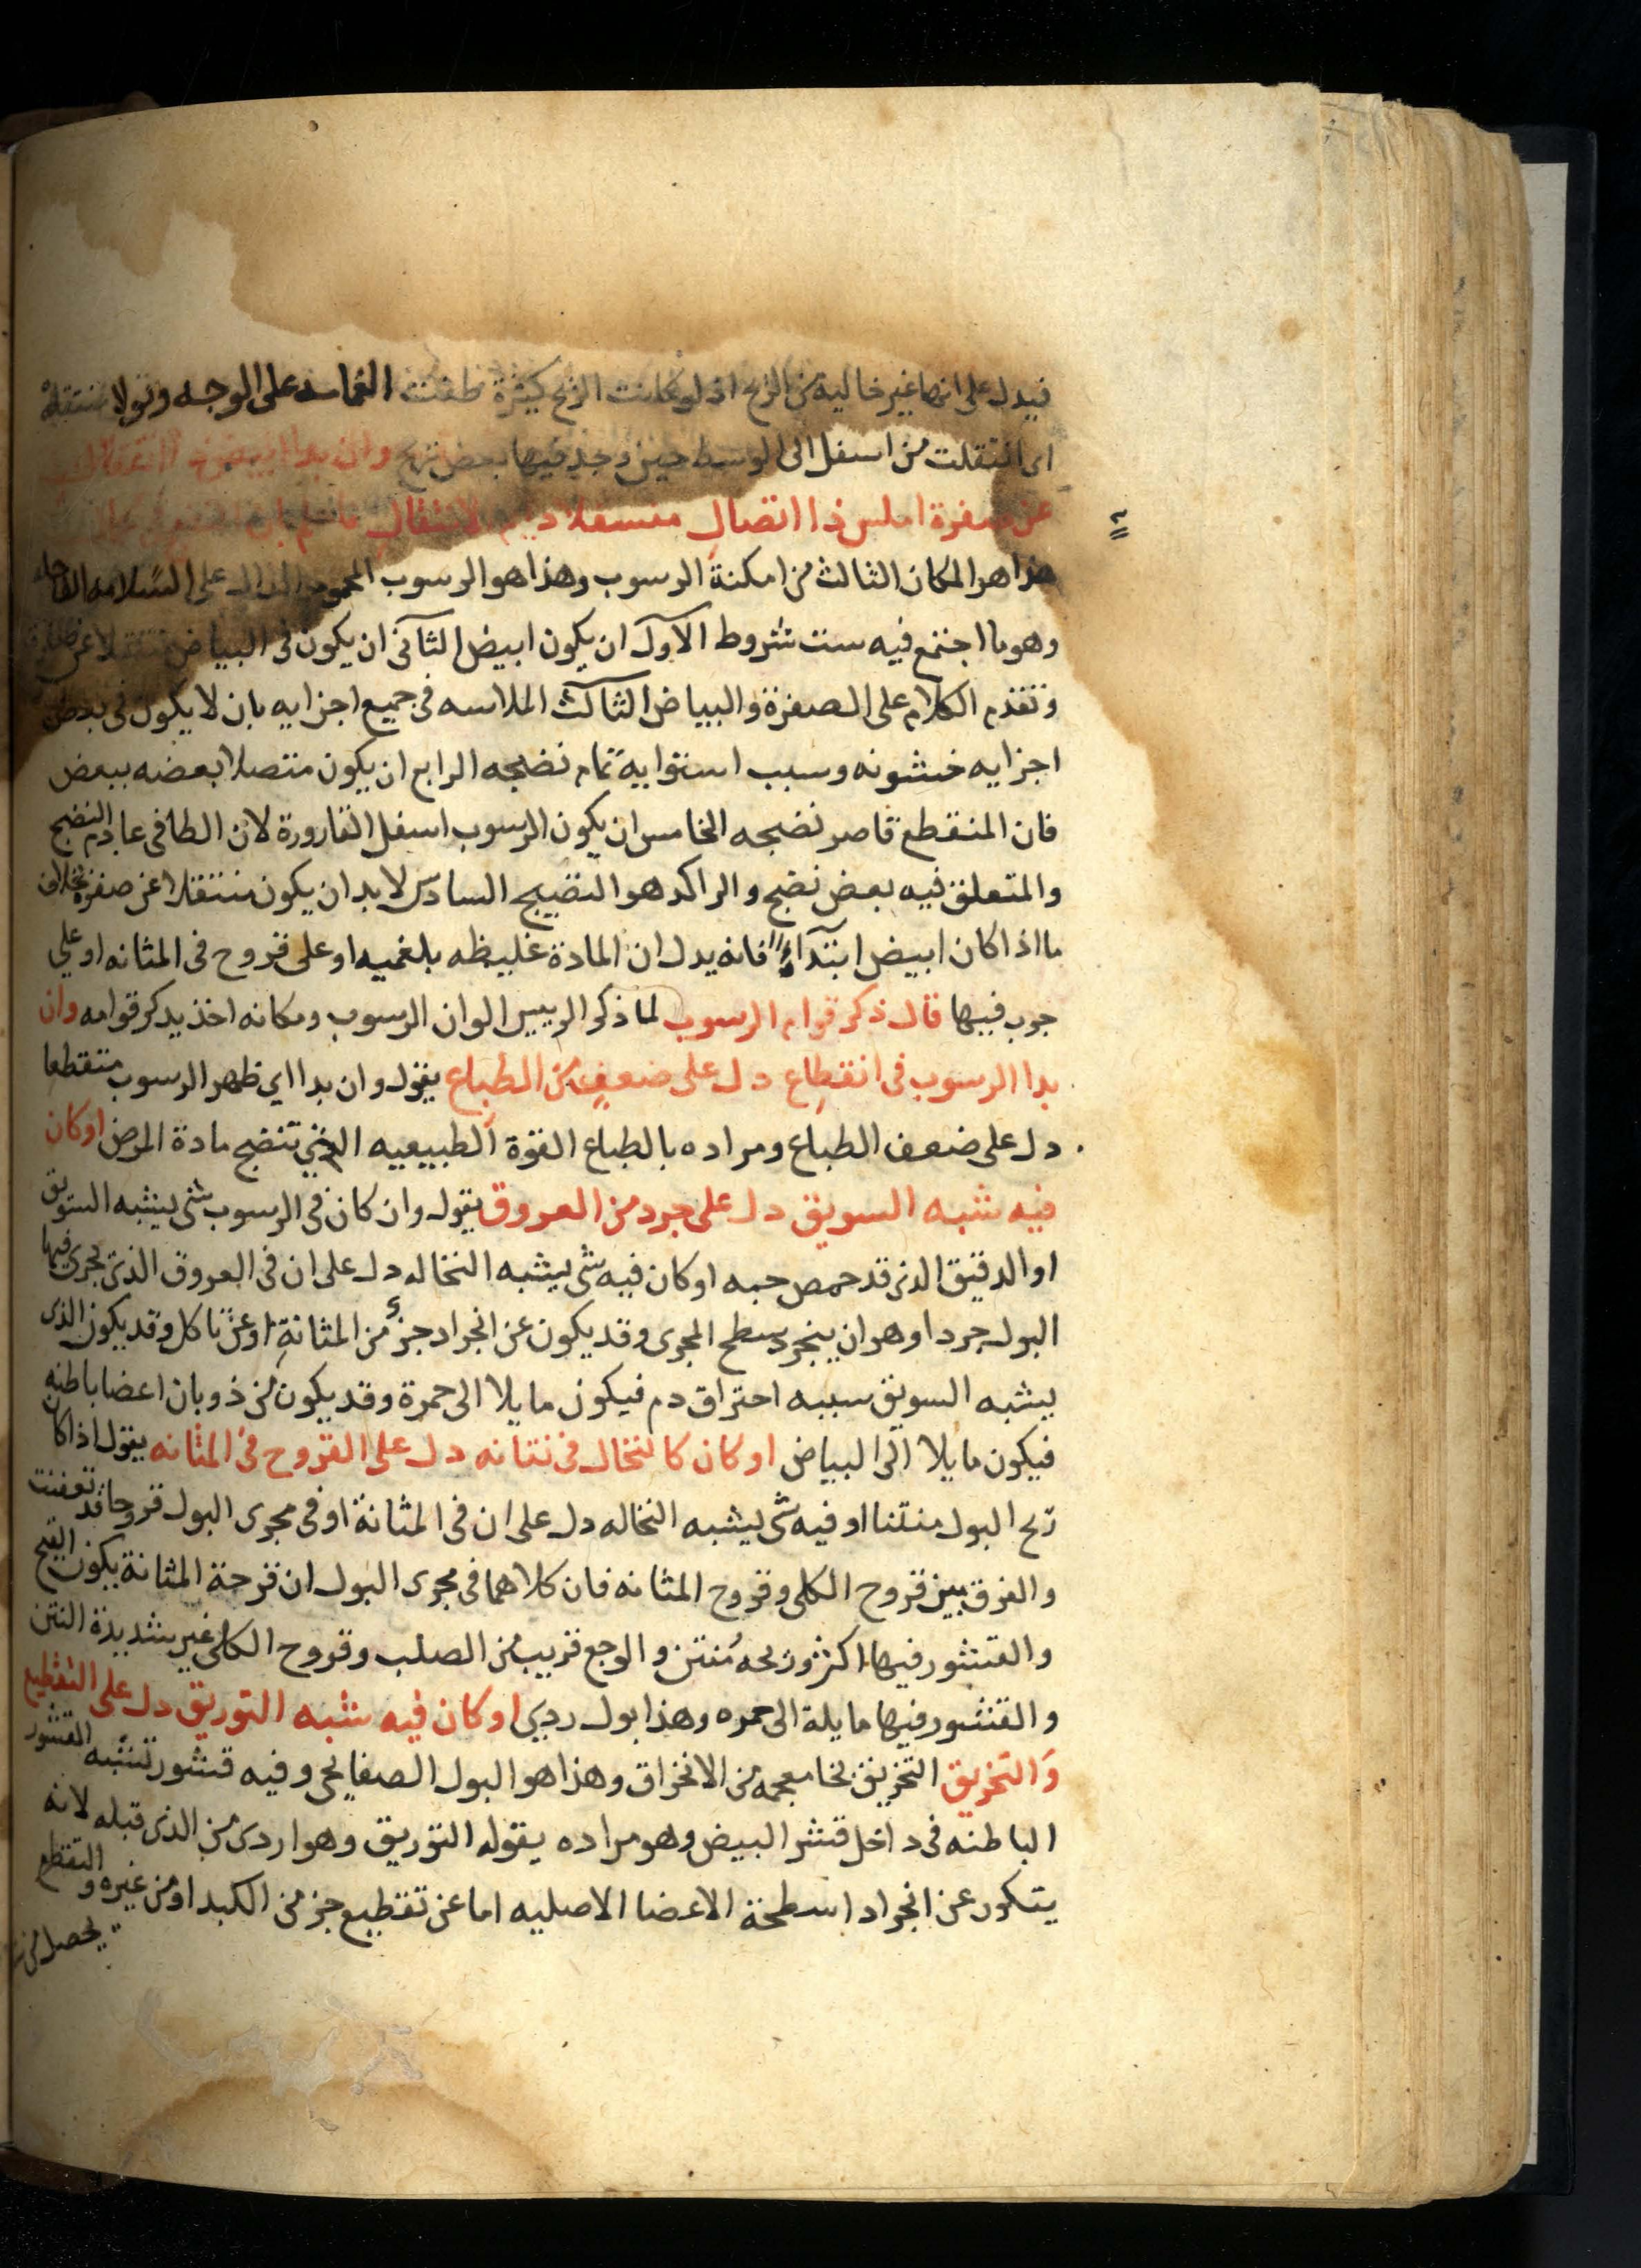 فيدل على انها غير خالية من الريح اذ لو كانت الريح كثيرة طفت الغمامه على الوجه وقولا منتقله
اى انتقلت من اسفل الى الوسط حين وجد فيها بعض ريح وان بدا ابيض ذا انتقال
عن صفرة املس ذا اتصال متسفلا دايم الانتقال
هذا هو المكان الثالث من امكنة الرسوب وهذا هو الرسوب المحمود الدال على السلامه
وهو ما اجتمع فيه ست شروط الاول ان يكون ابيض الثانى ان يكون فى البياض منتقلا عن صفرة
وتقدم الكلام على الصفرة والبياض الثالث الملاسه فى جميع اجزايه بان لا يكون فى بعض
اجزايه خشونه وسبب استوايه تمام نضجه الرابع ان يكون متصلا بعضه ببعض
فان المنقطع قاصر نضجه الخامس ان يكون الرسوب اسفل القارورة لان الطافى عادم النضج
والمتعلق فيه بعض نضج والراكد هو النضيج السادس لا بد ان يكون منتقلا عن صفرة بخلاف
ما اذا كان ابيض ابتداءً فانه يدل ان المادة غليظه بلغميه او على قروح فى المثانه او على
جرب فيها قال ذكر قوام الرسوب لما ذكر الرييس الوان الرسوب ومكانه اخذ يذكر قوامه وان
بدا الرسوب فى انقطاع دل على ضعف من الطباع يقول وان بدا اى ظهر الرسوب متقطعا
دل على ضعف الطباع ومراده بالطباع القوة الطبيعيه التى تنضج مادة المرض او كان
فيه شبه السويق دل على جرد من العروق يقول وان كان فى الرسوب شى يشبه السويق
او الدقيق الذى قد حمص حبه او كان فيه شى يشبه النخاله دل على ان فى العروق الذى يجرى فيها
البول جردا وهو ان ينجرد سطح المجرى وقد يكون عن انجراد جزء من المثانة او عن تاكل وقد يكون الذى
يشبه السويق سببه احتراق دم فيكون مايلا الى حمرة وقد يكون من ذوبان اعضا باطنه
فيكون مايلا الى البياض او كان كالنخال فى نتانه دل على القروح فى المثانه يقول اذا كان
ريح البول منتنا او فيه شى يشبه النخاله دل على ان فى المثانة او فى مجرى البول قروحا قد تعفنت
والفرق بين قروح الكلى وقروح المثانه فان كلاهما فى مجرى البول ان قرحة المثانة يكون القيح
والقشور فيها اكثر وريحه مُنتن والوجع قريب من الصلب وقروح الكلى غير شديدة النتن
والقشور فيها مايلة الى حمره وهذا بول ردى او كان فيه شبه التوريق دل على التقطيع
والتخريق التخريق بخا معجمه من الانخراق وهذا هو البول الصفايحى وفيه قشور تشبه القشور
الباطنه فى داخل قشر البيض وهو مراده بقوله التوريق وهو اردى من الذى قبله لانه
يتكور عن انجراد اسطحة الاعضا الاصليه اما عن تقطيع جز من الكبد او من غيره والتقطع
يحصل من